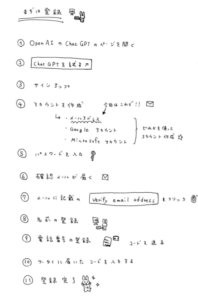 まずは登録
① Open AI の Chat GPT のページを開く
② Chat GPT を試す ↗
③ サインアップ
④ アカウントを作成 今回はこれ!!
↳ ・メールアドレス
・Google アカウント
・Microsoft アカウント
どれかを使って
アカウント作成
⑤ パスワードを入力
⑥ 確認メールが届く
⑦ メールに記載の Verify email address をクリック
⑧ 名前の登録
⑨ 電話番号の登録 コードを送る
⑩ ケータイに届いたコードを入力する
⑪ 登録完了